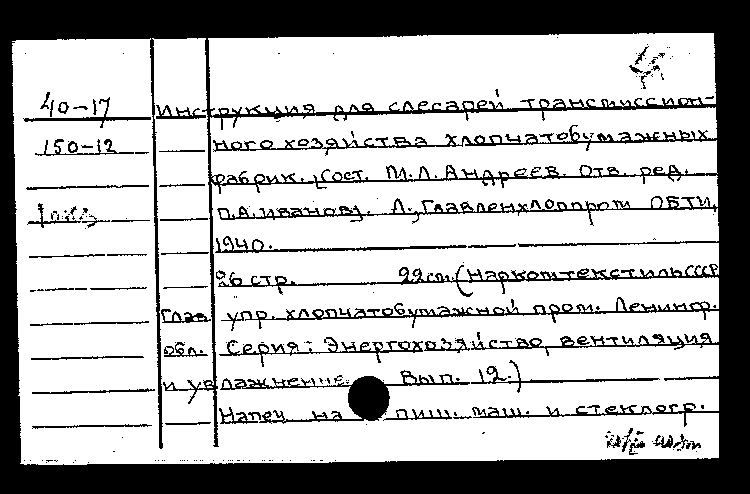 40-17 Инструкция для слесарей трансмиссион-
150-12 ного хозяйства хлопчатобумажных
фабрик. [Сост. М.Л. Андреев. Отв. ред.
П.А. Иванов]. Л., Главленхлоппром ОБТИ,
1940.
26 стр. 22 см. (Наркомтекстиль СССР
Глав. упр. хлопчатобумажной пром. Ленингр.
обл. Серия: Энергохозяйство, вентиляция
и увлажнение. Вып. 12.)
Напеч. на пиш. маш. и стеклогр.